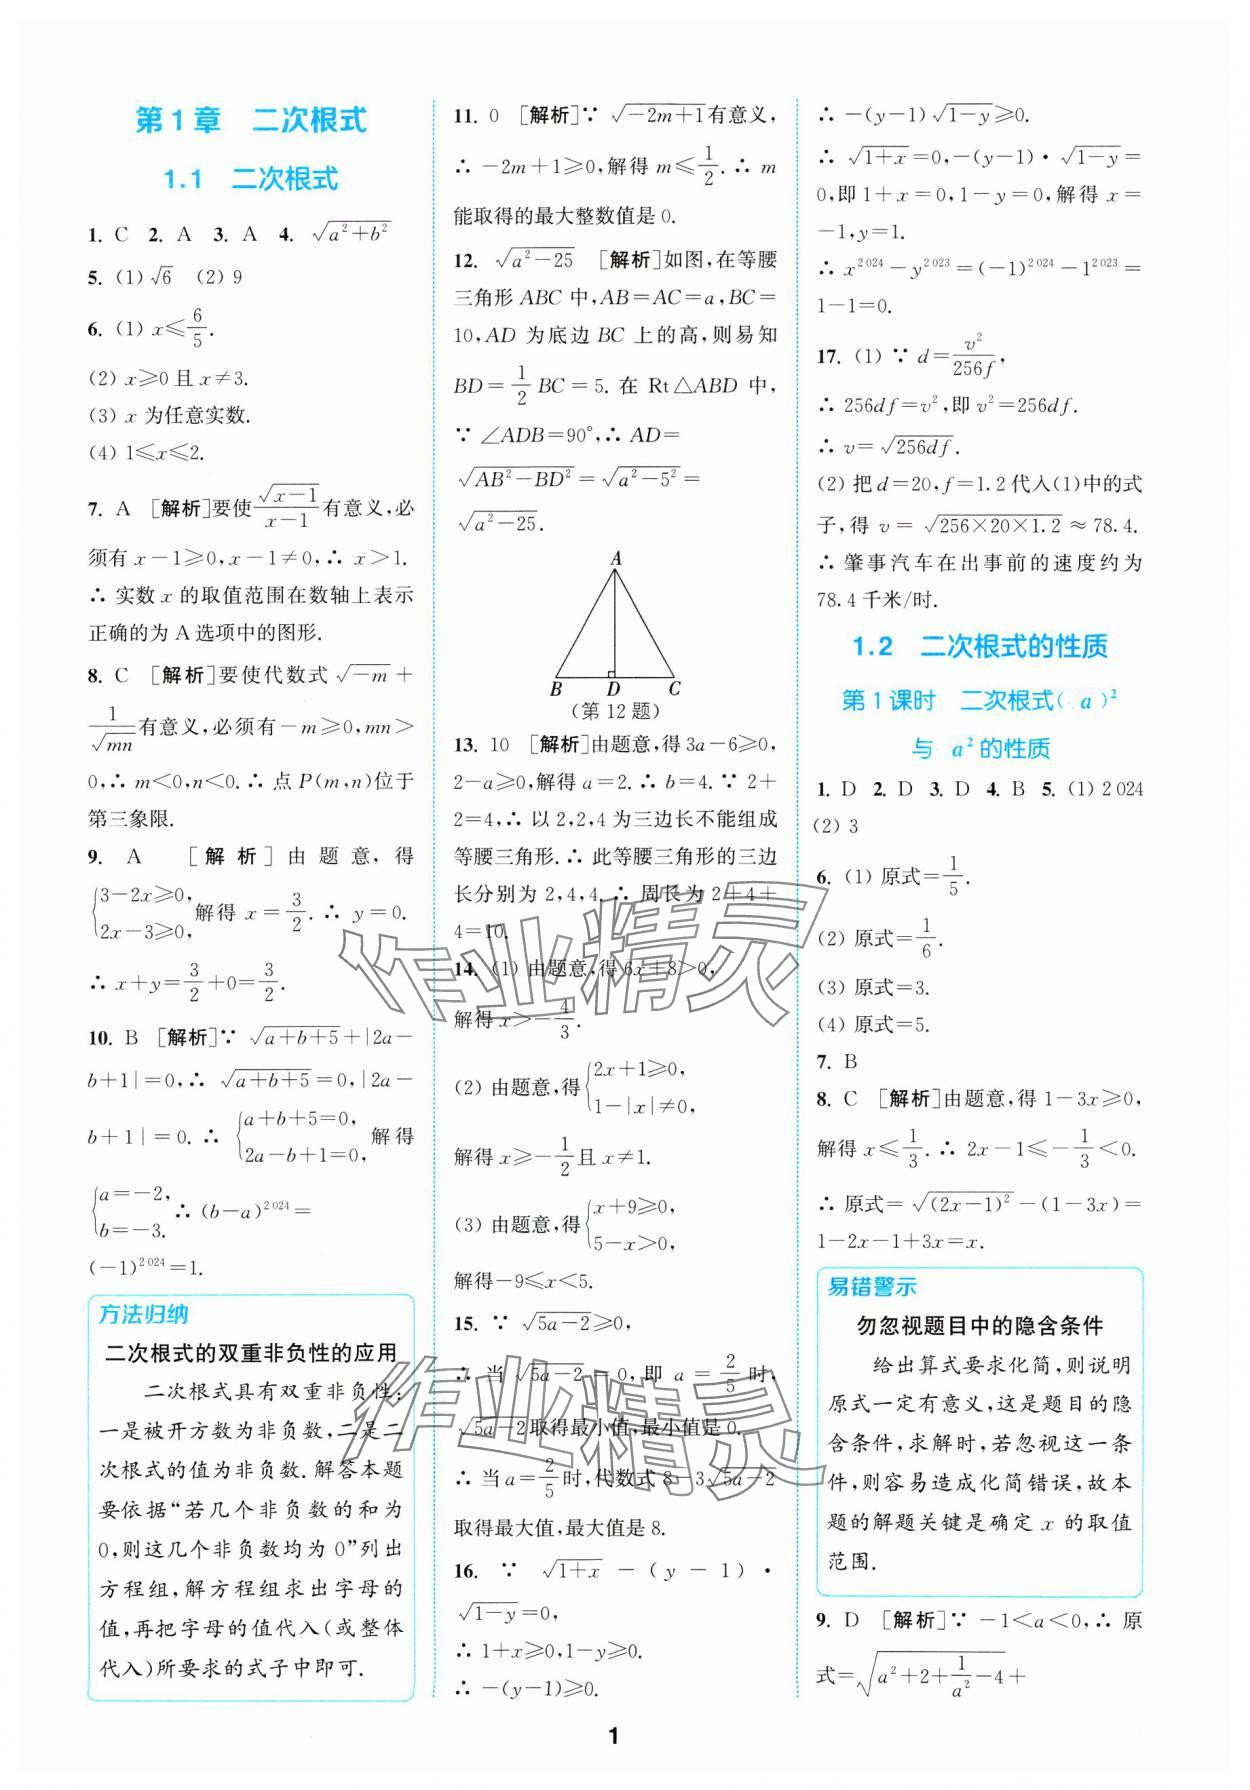 第1章 二次根式
1.1 二次根式
1. C 2. A 3. A 4. √(a²+b²)
5. (1)√6 (2) 9
6. (1) x≤6/5.
(2) x≥0且x≠3.
(3) x 为任意实数.
(4) 1≤x≤2.
7. A [解析]要使√(x-1)/(x-1)有意义,必
须有 x-1≥0,x-1≠0,∴ x>1.
∴ 实数 x 的取值范围在数轴上表示
正确的为 A 选项中的图形.
8. C [解析]要使代数式√(-m)+
1/√(mn)有意义,必须有-m≥0,mn>
0,∴ m<0,n<0.∴ 点 P(m,n)位于
第三象限.
9. A [解析]由题意,得
{3-2x≥0,
2x-3≥0, 解得 x=3/2.∴ y=0.
∴ x+y=3/2+0=3/2.
10. B [解析]∵ √(a+b+5)+|2a-
b+1|=0,∴ √(a+b+5)=0,|2a-
b+1|=0.∴ {a+b+5=0,
2a-b+1=0, 解得
{a=-2,
b=-3. ∴ (b-a)²⁰²⁴=
(-1)²⁰²⁴=1.
方法归纳
二次根式的双重非负性的应用
二次根式具有双重非负性:
一是被开方数为非负数,二是二
次根式的值为非负数.解答本题
要依据“若几个非负数的和为
0,则这几个非负数均为0”列出
方程组,解方程组求出字母的
值,再把字母的值代入(或整体
代入)所要求的式子中即可.
11. 0 [解析]∵ √(-2m+1)有意义,
∴ -2m+1≥0,解得 m≤1/2.∴ m
能取得的最大整数值是0.
12. √(a²-25) [解析]如图,在等腰
三角形 ABC 中,AB=AC=a,BC=
10,AD 为底边 BC 上的高,则易知
BD=1/2 BC=5.在 Rt△ABD 中,
∵ ∠ADB=90°,∴ AD=
√(AB²-BD²)=√(a²-5²)=
√(a²-25).
A
B D C
(第12题)
13. 10 [解析]由题意,得3a-6≥0,
2-a≥0,解得 a=2.∴ b=4.∵ 2+
2=4,∴ 以2,2,4为三边长不能组成
等腰三角形.∴ 此等腰三角形的三边
长分别为2,4,4.∴ 周长为2+4+
4=10.
14. (1) 由题意,得6x+8>0,
解得 x>-4/3.
(2) 由题意,得{2x+1≥0,
1-|x|≠0,
解得 x≥-1/2且 x≠1.
(3) 由题意,得{x+9≥0,
5-x>0,
解得-9≤x<5.
15. ∵ √(5a-2)≥0,
∴ 当√(5a-2)=0,即 a=2/5时,
√(5a-2)取得最小值,最小值是0.
∴ 当a=2/5时,代数式8-3√(5a-2)
取得最大值,最大值是8.
16. ∵ √(1+x)-(y-1)·
√(1-y)=0,
∴ 1+x≥0,1-y≥0.
∴ -(y-1)≥0.
∴ -(y-1)√(1-y)≥0.
∴ √(1+x)=0,-(y-1)·√(1-y)=
0,即1+x=0,1-y=0,解得 x=
-1,y=1.
∴ x²⁰²⁴-y²⁰²³=(-1)²⁰²⁴-1²⁰²³=
1-1=0.
17. (1) ∵ d=v²/256f,
∴ 256df=v²,即 v²=256df.
∴ v=√(256df).
(2) 把 d=20,f=1.2代入(1)中的式
子,得 v=√(256×20×1.2)≈78.4.
∴ 肇事汽车在出事前的速度约为
78.4千米/时.
1.2 二次根式的性质
第1课时 二次根式( a )²
与 a²的性质
1. D 2. D 3. D 4. B 5. (1) 2024
(2) 3
6. (1) 原式=1/5.
(2) 原式=1/6.
(3) 原式=3.
(4) 原式=5.
7. B
8. C [解析]由题意,得1-3x≥0,
解得 x≤1/3.∴ 2x-1≤-1/3<0.
∴ 原式=√((2x-1)²)-(1-3x)=
1-2x-1+3x=x.
易错警示
勿忽视题目中的隐含条件
给出算式要求化简,则说明
原式一定有意义,这是题目的隐
含条件,求解时,若忽视这一条
件,则容易造成化简错误,故本
题的解题关键是确定 x 的取值
范围.
9. D [解析]∵ -1<a<0,∴ 原
式=√(a²+2+1/a²-4)+
1
作业精灵
作业精灵